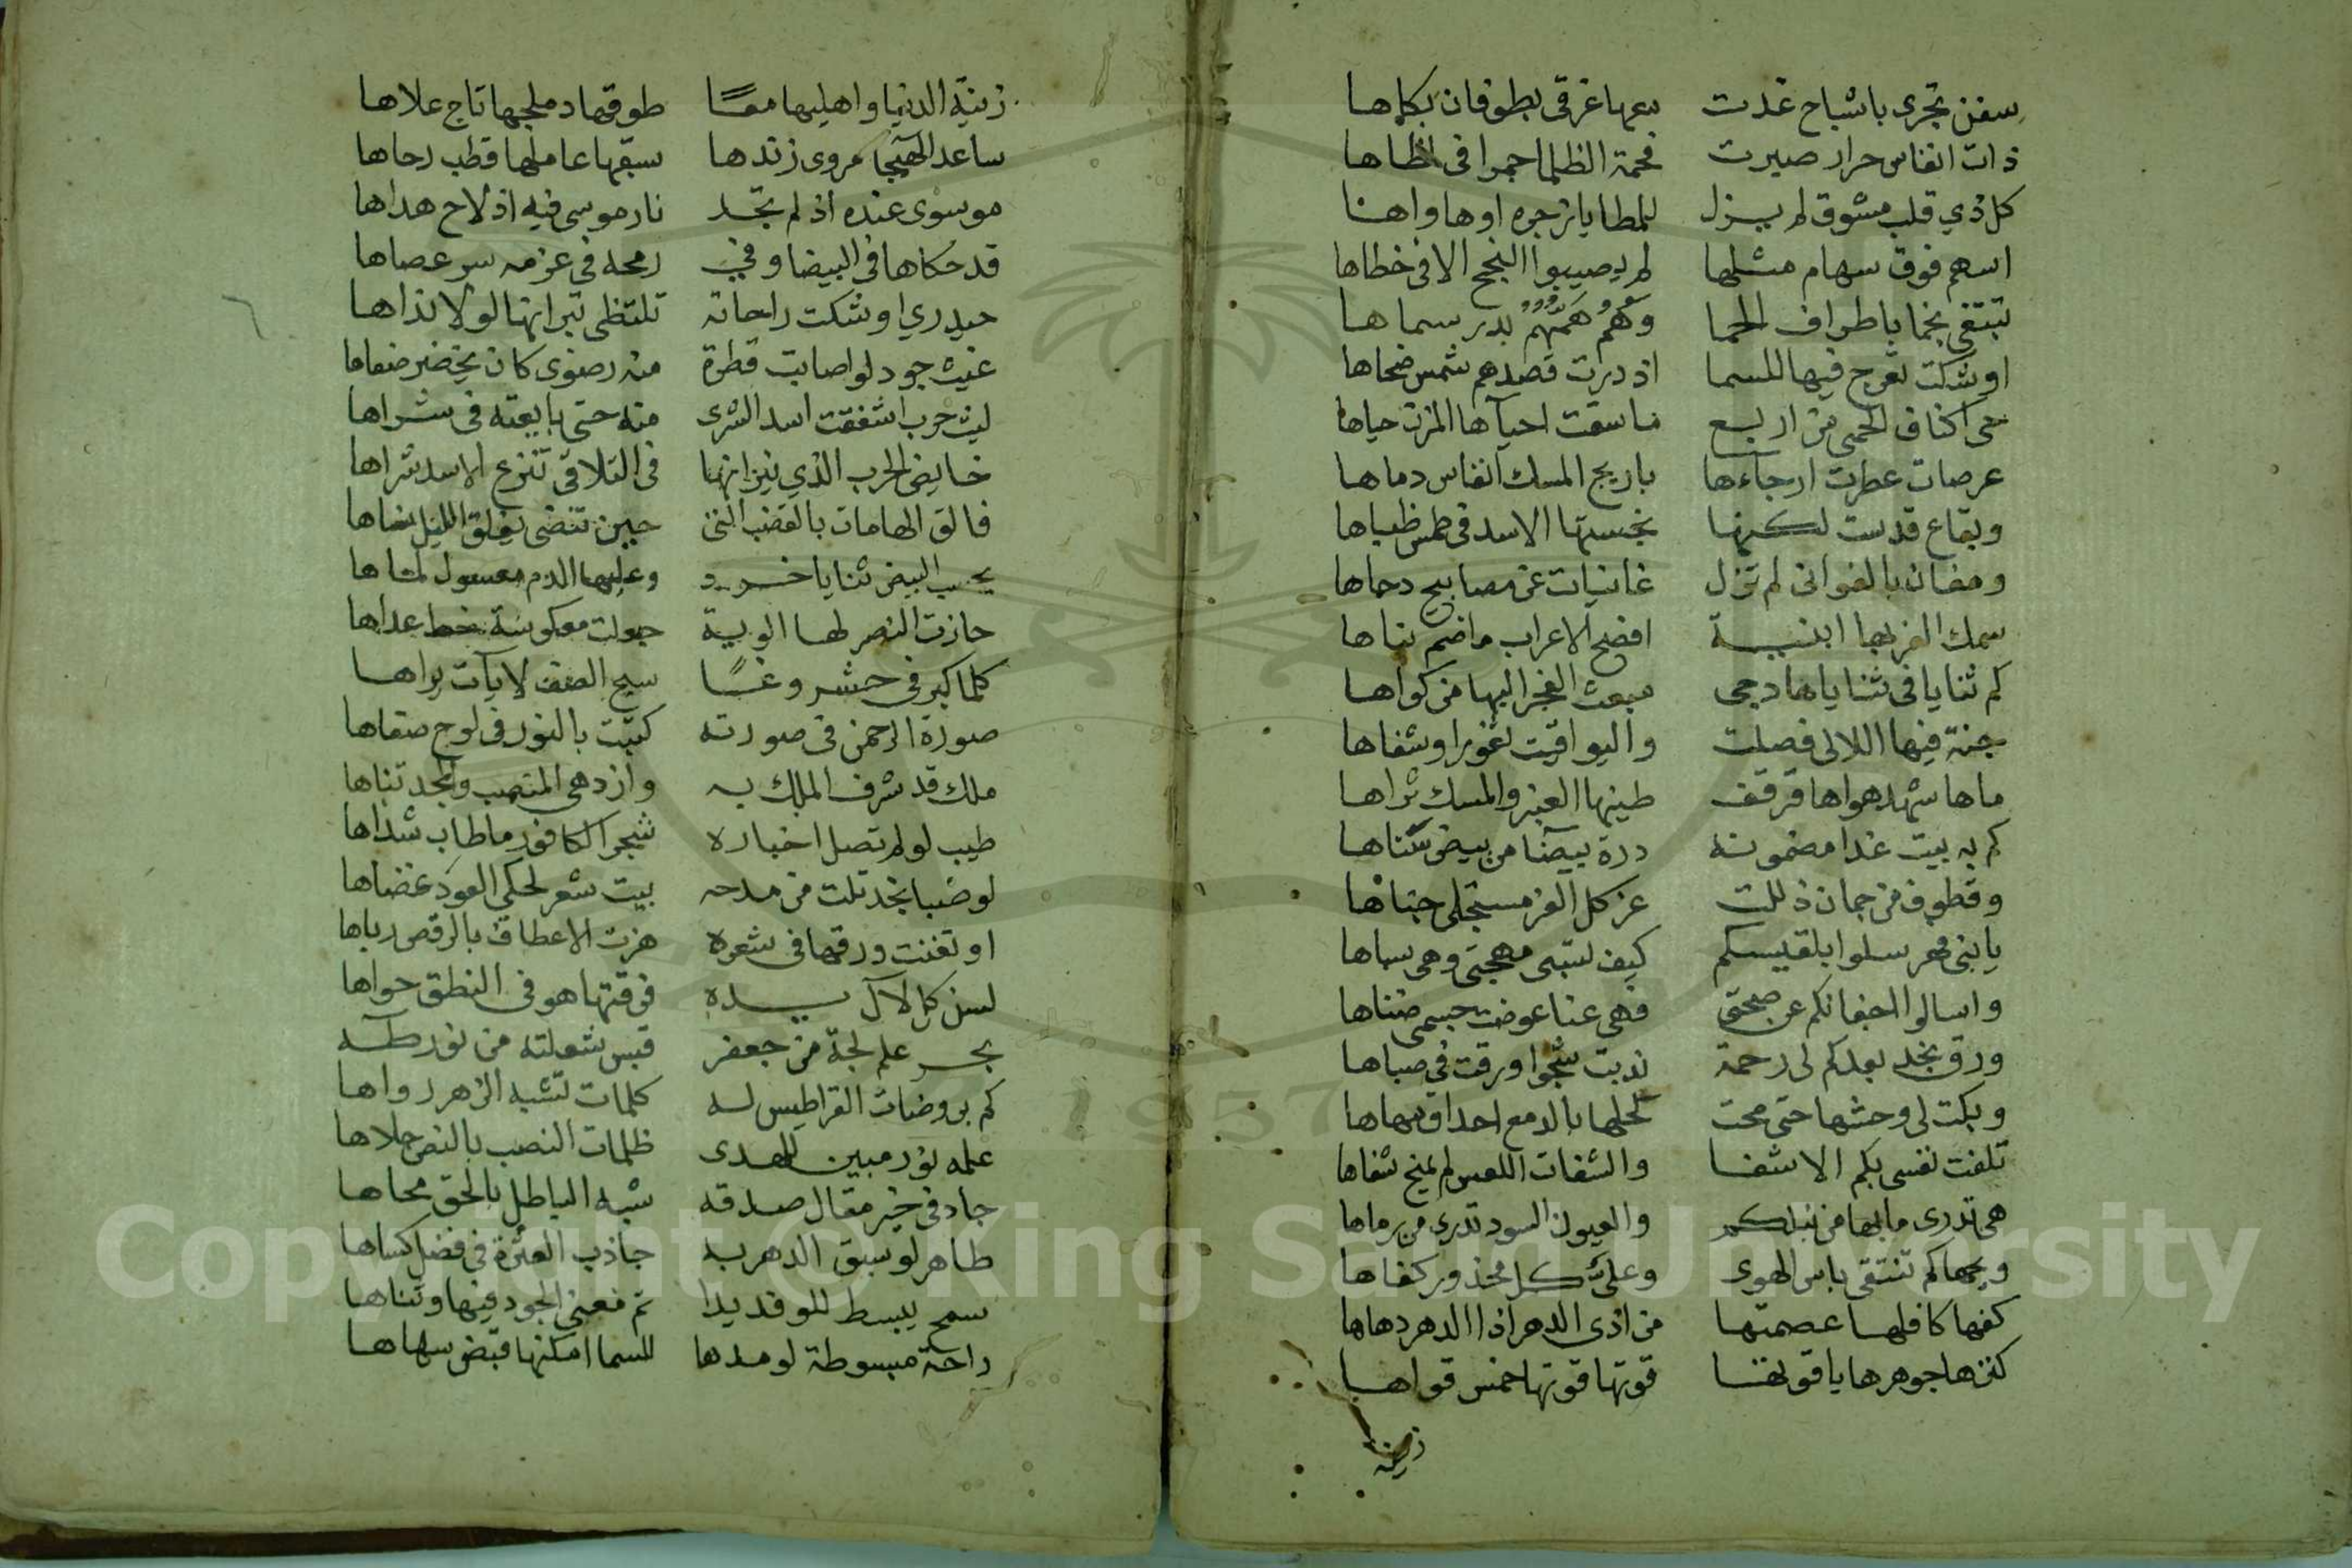 سفن تجرى باشباح غدت سمها غرقى بطوفان بكاها
ذات انفاس حرار صيرت فحمة الظلما جمرا فى لظاها
كل ذي قلب مشوق لم يزل للمطايا زجره اوها واها
اسهم فوق سهام مثلها لم يصيبوا النجح الا فى خطاها
تبتغى نجما باطراف الحما وهم همهم بدر سماها
اوشكت تعرج فيها للسما اذ درت قصدهم شمس ضحاها
حى اكناف الحمى من اربع ما سقت احيآها المزن حياها
عرصات عطرت ارجآءها باريج المسك انفاس دماها
وبقاع قدست لكنها نجستها الاسد فى طمس ظباها
ومغان بالغوانى لم تزل غانيات عن مصابيح دجاها
سمك العز بها ابنية افصح الاعراب ما ضم بناها
كم ثنايا فى ثناياها دجى يبعث الفجر اليها من كواها
جنة فيها اللالى فصلت واليواقيت ثغورا وشفاها
ماها شهد هواها قرقف طينها العنبر والمسك ثراها
كم به بيت غدا مضمونه درة بيضآ من بيض نساها
وقطوف من جمان ذللت عز كل العز مستجلى جناها
يا بنى فهر سلوا بلقيسكم كيف تسبى مهجتى وهى سباها
واسالوا اجفانكم عن صحتى فهى عنها عوضت جسمى ضناها
ورق نجد بعدكم لى رحمة ندبت شجوا ورقت فى صباها
وبكت لى وحشها حتى محت كحلها بالدمع احداق مهاها
تلفت نفسى بكم الا شفا والشفات اللعس لم تمنح شفاها
هى تدرى ما بها من نبلكم والعيون السود تدرى من رماها
ويحها كم تنتقى باس الهوى وعلىّ كل محذور كفاها
كفها كافلها عصمتها من اذى الدهر اذا الدهر دهاها
كنزها جوهرها ياقوتها قوتها قوتها خمس قواها
زينة
زينة الدنيا واهليها معًا طوقها دملجها تاج علاها
ساعد الهيجا مروى زندها سيفها عاملها قطب رحاها
موسوى عنده اذ لم تجد نار موسى فيه اذ لاح هداها
قد حكاها فى البيضا وفى رمحه فى عزمه سر عصاها
حيدري اوشكت راحاته تلتظى نيرانها لولا نداها
غيث جود لو اصابت قطرة منه رضوى كان يخضر صفاها
ليث حرب اشفقت اسد الشرى منه حتى بايعته فى شراها
خايض الحرب الذي نيرانها فى التلاقى تنزع الاسد شراها
فالق الهامات بالقضب التى حين تنضى يفلق الليل سناها
يحسب البيض ثنايا خرد وعليها الدم معسول لماها
حازت النصر لها الوية جعلت معكوسة خط عداها
كلما كبر فى حشر وغًا سبح الصف لايآت يراها
صورة الرحمن فى صورته كتبت بالنور فى لوح صفاها
ملك قد شرف الملك به وازدهى المنصب والمجد تباها
طيب لو لم تصل اخباره شجر الكافور ما طاب شذاها
لو صبا نجد تلت من مدحه بيت شعر لحكى العود غضاها
او تغنت ورقها فى شعره هزت الاعطاف بالرقص رباها
لسن كل لآل يده فرقتها هو فى النطق حواها
بحر علم لجة من جعفر قبس شعلته من نور طه
كم بروضات القراطيس له كلمات تشبه الزهر رواها
علمه نور مبين للهدى ظلمات النصب بالنص جلاها
جاد فى خير مقال صدقه شبه الباطل بالحق محاها
طاهر لو سبق الدهر به جاذب العترة فى فضل كساها
سمح يبسط للوفد يدا تم معنى الجود فيها وتناها
راحة مبسوطة لو مدها للسما امكنها قبض سهاها